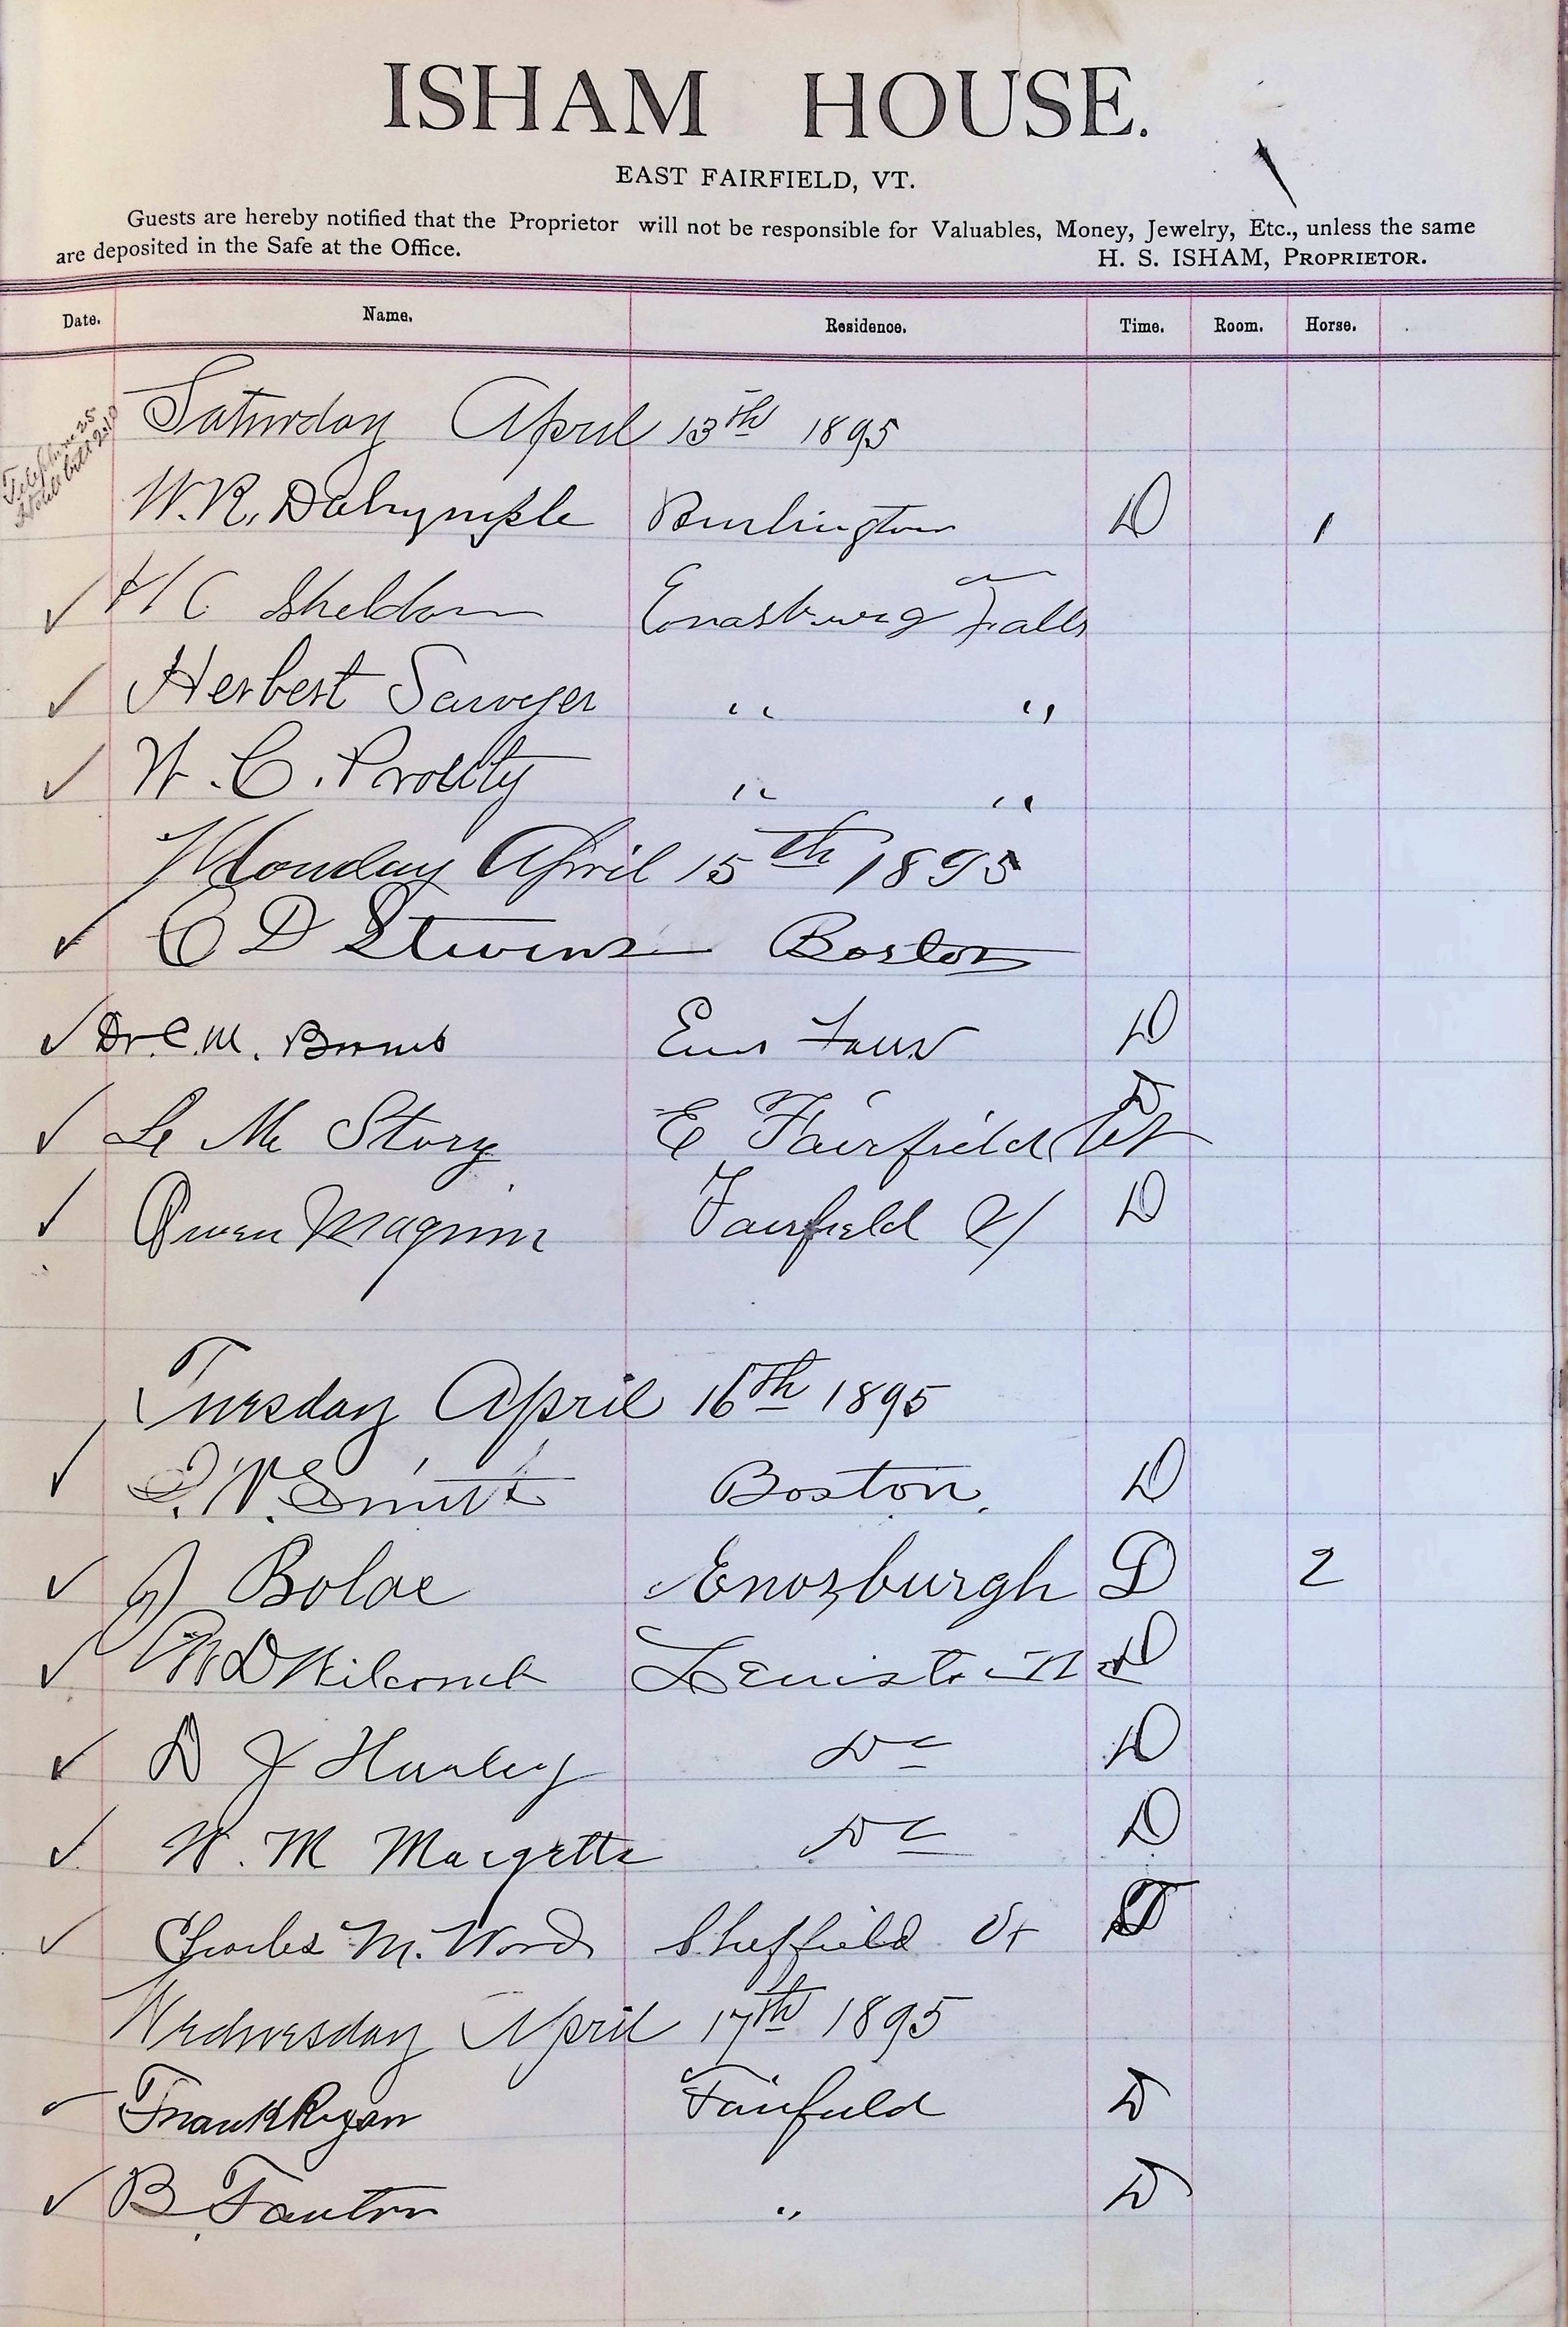 ISHAM HOUSE.
EAST FAIRFIELD, VT.
Guests are hereby notified that the Proprietor will not be responsible for Valuables, Money, Jewelry, Etc., unless the same
are deposited in the Safe at the Office. H. S. ISHAM, PROPRIETOR.
Date. Name. Residence. Time. Room. Horse.
Saturday April 13th 1895
Telephone 25
W. R. Dalrymple Burlington D 1
✓ H C Sheldon Enosburg Falls
✓ Herbert Sawyer " "
✓ W. C. Prouty " "
Monday April 15th 1895
✓ C D Stevens Boston
✓ Dr. C. M. D
✓ Le M Story E Fairfield Vt D
✓ Owen Maginn Fairfield Vt D
Tuesday April 16th 1895
✓ W. Smith Boston. D
✓ J Bolac Enosburgh D 2
✓ D Wilcomb D
✓ D J Hurley Do D
✓ W. M Do D
✓ Charles M. Wood Sheffield Vt
Wednesday April 17th 1895
✓ Frank Ryan Fairfield D
✓ B Fanton " D